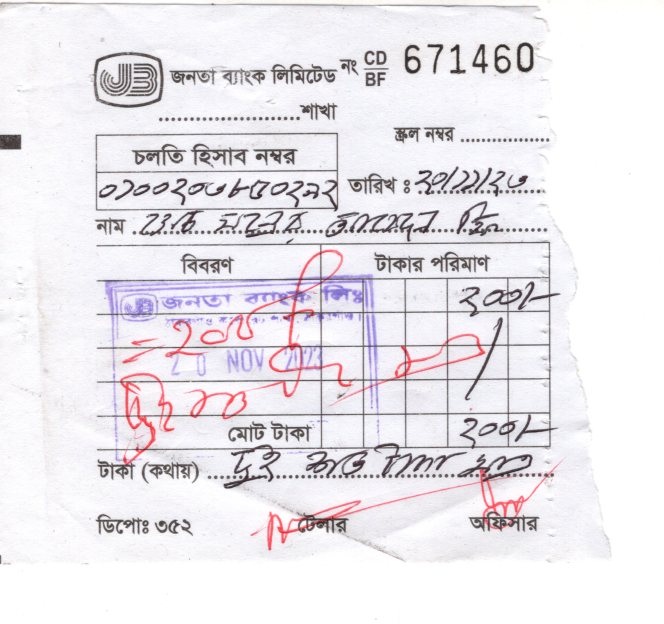 JB জনতা ব্যাংক লিমিটেড নং CD/BF 671460
....................শাখা
স্ক্রল নম্বর ................
চলতি হিসাব নম্বর
তারিখ : ২০/১১/২৩
নাম
বিবরণ টাকার পরিমাণ
জনতা ব্যাংক লিঃ
২০০/-
= ২০০/-
20 NOV 2023
মোট টাকা ২০০/-
টাকা (কথায়) দুই শত টাকা মাত্র
ডিপোঃ ৩৫২ টেলার অফিসার